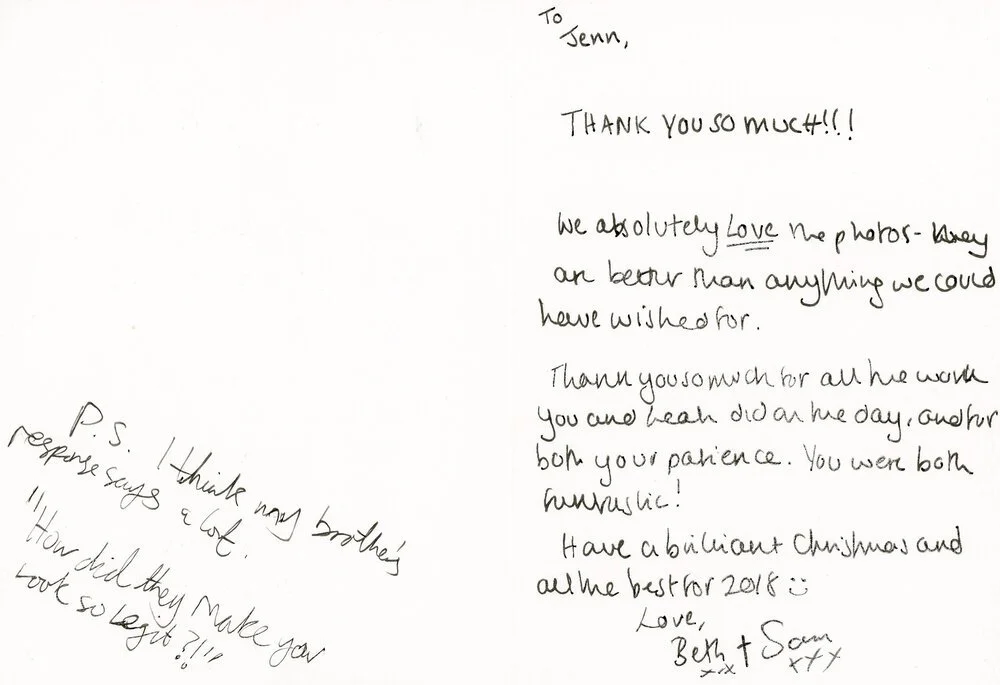 To
Jenn,
THANK YOU SO MUCH!!!
We absolutely Love the photos - they
are better than anything we could
have wished for.
Thank you so much for all the work
you and Leah did on the day, and for
both your patience. You were both
fantastic!
Have a brilliant Christmas and
all the best for 2018 :)
Love,
Beth + Sam
xxx xxx
P.S. I think my brother's
response says a lot.
"How did they make you
look so legit?!"